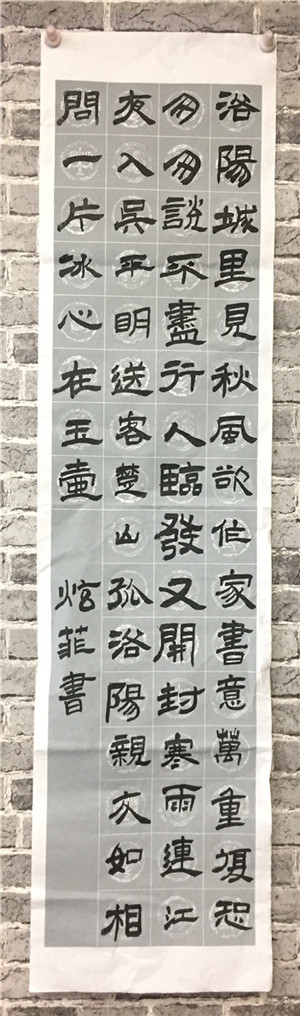 洛陽城里見秋風欲作家書意萬重復恐
匆匆說不盡行人臨發又開封寒雨連江
夜入吳平明送客楚山孤洛陽親友如相
問一片冰心在玉壺 炫菲書